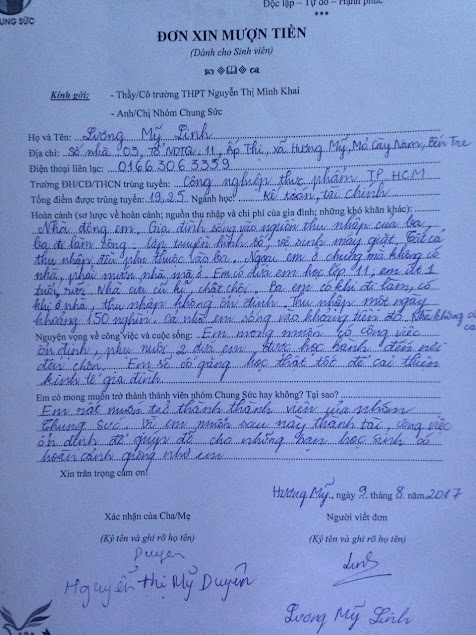 UNG SỨC
Độc lập – Tự do – Hạnh phúc
***
ĐƠN XIN MƯỢN TIỀN
(Dành cho Sinh viên)
Kính gửi: - Thầy/Cô trường THPT Nguyễn Thị Minh Khai
- Anh/Chị Nhóm Chung Sức
Họ và Tên: Lương Mỹ Linh
Địa chỉ: Số nhà: 03, Tổ NDTQ: 11, Ấp Thị, xã Hương Mỹ, Mỏ Cày Nam, Bến Tre
Điện thoại liên lạc: 01663063359
Trường ĐH/CĐ/THCN trúng tuyển: Công nghiệp thực phẩm TP. HCM
Tổng điểm được trúng tuyển: 19,25 Ngành học: kế toán, tài chính
Hoàn cảnh (sơ lược về hoàn cảnh; nguồn thu nhập và chi phí của gia đình; những khó khăn khác):
Nhà đông em. Gia đình sống vào nguồn thu nhập của ba,
ba đi làm công: lắp truyền hình số, vệ sinh máy giặt. Tất cả
thu nhập đều phụ thuộc vào ba. Ngoài em ở chung mà không có
nhà, phải mượn nhà mà ở. Em có đứa em học lớp 11, em
tuổi rưỡi. Nhà cửa cũ kĩ, chật chội. Ba em có khi đi làm, có
khi ở nhà, thu nhập không ổn định. Thu nhập một ngày
khoảng 150 nghìn, cả nhà em sống vào khoảng tiền đó.
Nguyện vọng về công việc và cuộc sống: Em mong muốn có công việc
ổn định, phụ nuôi 2 đứa em được học hành đến nơi
đến chốn. Em sẽ cố gắng học thật tốt để cải thiện
kinh tế gia đình
Em có mong muốn trở thành thành viên nhóm Chung Sức hay không? Tại sao?
Em rất muốn trở thành thành viên của nhóm
Chung Sức. Vì em muốn sau này thành tài, công việc
ổn định để giúp đỡ cho những bạn học sinh có
hoàn cảnh giống như em
Xin trân trọng cảm ơn!
Hương Mỹ, ngày 9 tháng 8 năm 2017
Xác nhận của Cha/Mẹ Người viết đơn
(Ký tên và ghi rõ họ tên) (Ký tên và ghi rõ họ tên)
Duyên Linh
Nguyễn Thị Mỹ Duyên
Lương Mỹ Linh